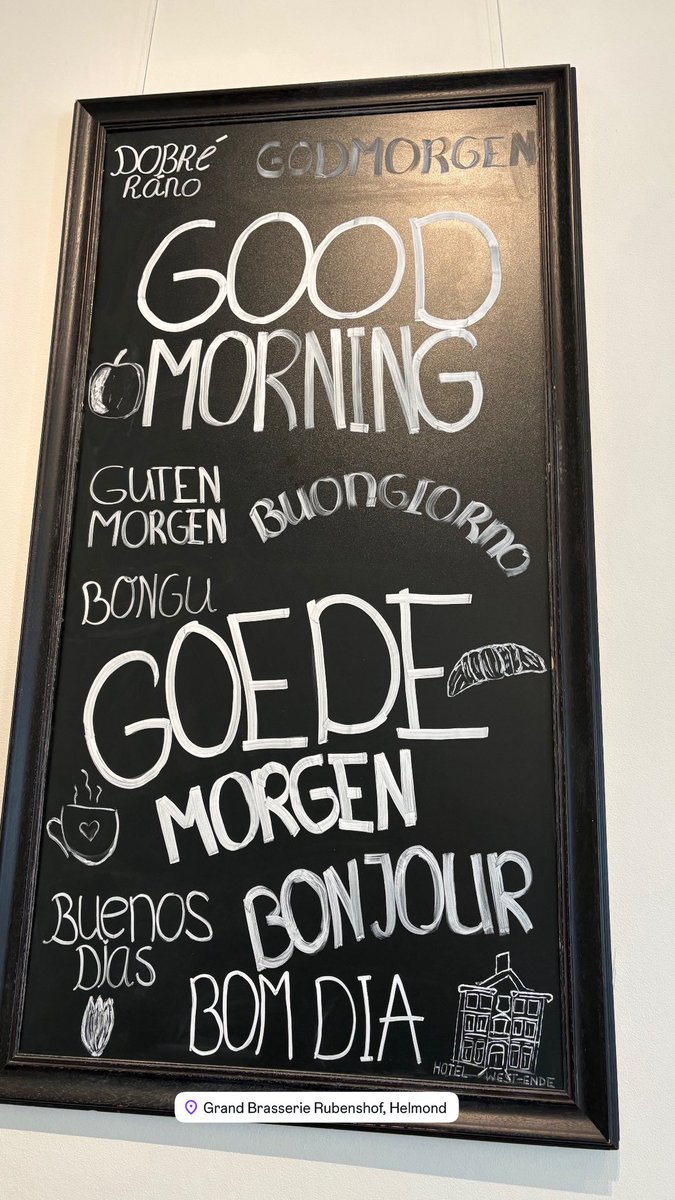 DOBRÉ
RÁNO
GODMORGEN
GOOD
MORNING
GUTEN
MORGEN
BUONGIORNO
BONGU
GOEDE
MORGEN
BONJOUR
BUENOS
DÍAS
BOM DIA
HOTEL WEST-ENDE
Grand Brasserie Rubenshof, Helmond